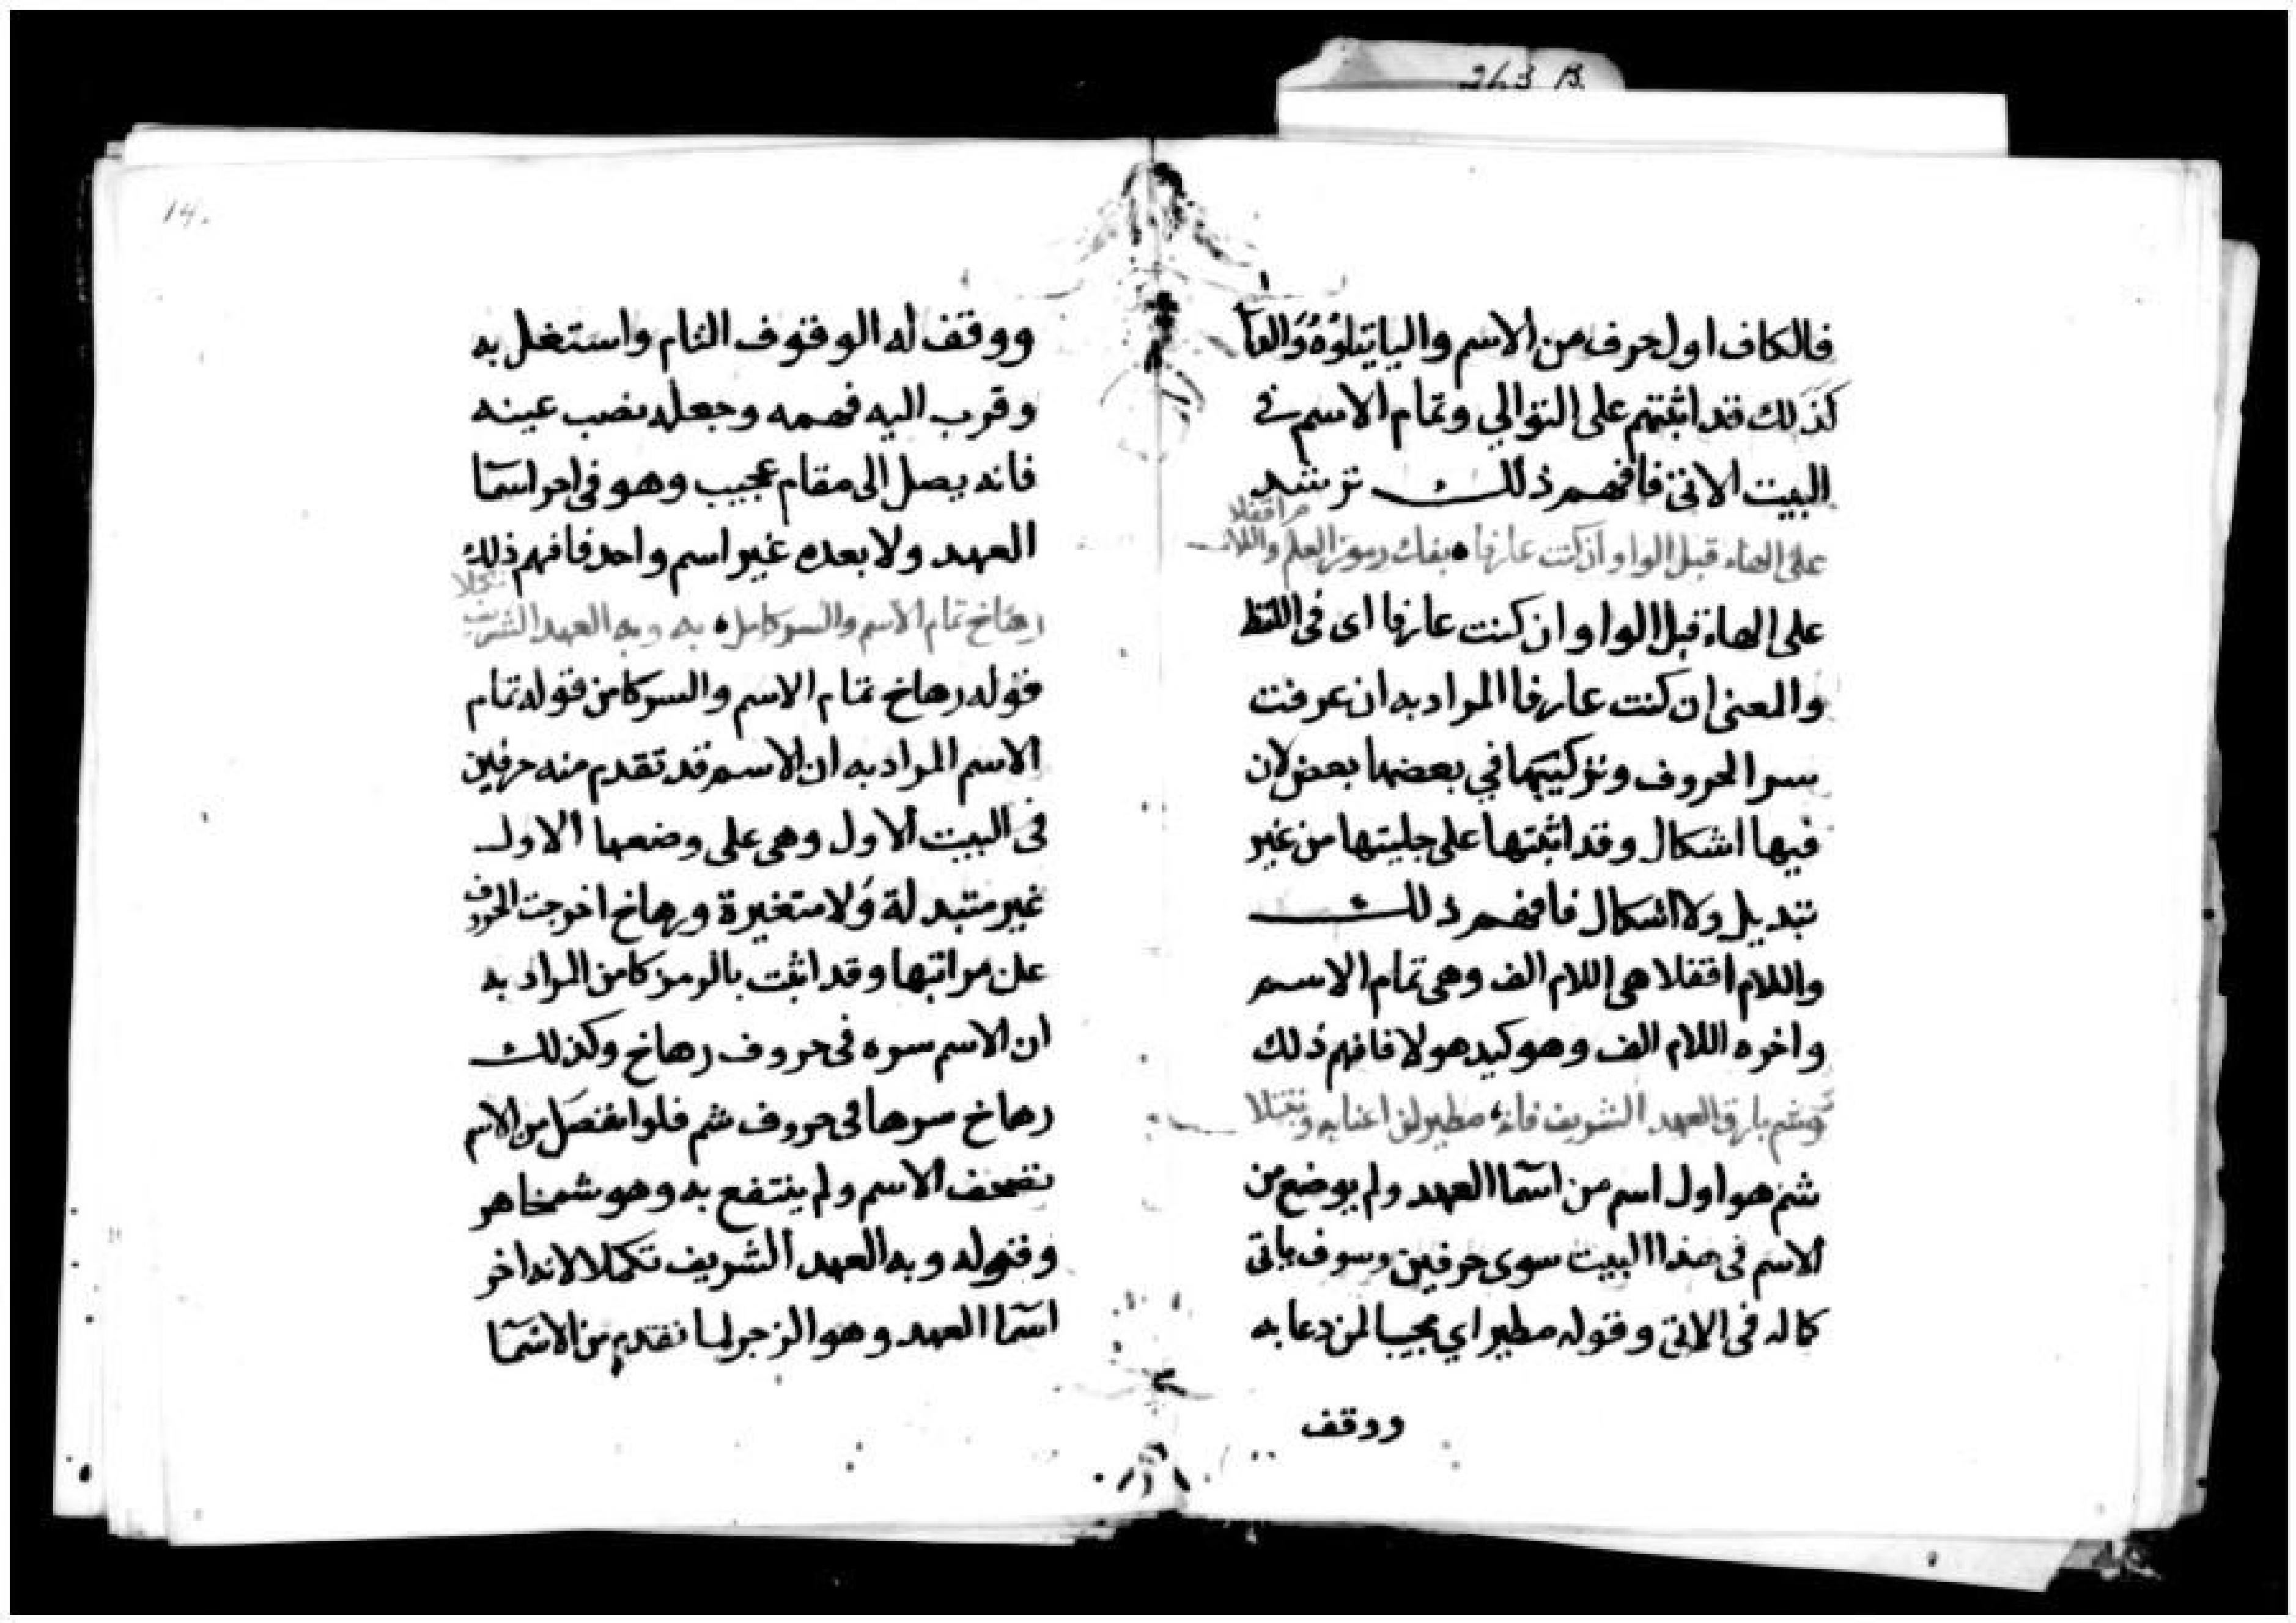 263 B.
فالكاف اول حرف من الاسم واليا يتلوه والها
كذلك قد اثبتهم على التوالي وتمام الاسم في
البيت الاتي فافهم ذلك ترشد
على الهاء قبل الواو ان كنت عارفا بفك رموز العلم واللام اقفلا
على الهاء قبل الواو ان كنت عارفا اى فى اللفظ
والمعنى ان كنت عارفا المراد به ان عرفت
سر الحروف وتركيبها في بعضها بعض لان
فيها اشكال وقد اثبتها على جليتها من غير
تبديل ولا اشكال فافهم ذلك
واللام اقفلا هى اللام الف وهى تمام الاسم
واخره اللام الف وهو كيدهولا فافهم ذلك
بارق العهد الشريف فانه مطير لمن اعنا به
شم هو اول اسم من اسما العهد ولم يوضع من
الاسم فى هذا البيت سوى حرفين وسوف ياتى
كماله فى الاتى وقوله مطير اي مجيبا لمن دعا به
ووقف
14.
ووقف له الوقوف التام واستغل به
وقرب اليه فهمه وجعله نصب عينه
فانه يصل الى مقام عجيب وهو فى اخر اسما
العهد ولا بعده غير اسم واحد فافهم ذلك
رهاخ تمام الاسم والسر كامن به وبه العهد الشريف تكملا
قوله رهاخ تمام الاسم والسر كامن قوله تمام
الاسم المراد به ان الاسم قد تقدم منه حرفين
فى البيت الاول وهى على وضعها الاول
غير متبدلة ولا متغيرة ورهاخ اخرجت الحروف
على مراتبها وقد اثبت بالرمز كامن المراد به
ان الاسم سره فى حروف رهاخ وكذلك
رهاخ سرها فى حروف شم فلو انفصل من الاسم
الاسم ولم ينتفع به وهو شمخاهر
وقوله وبه العهد الشريف تكملا لانه اخر
اسما العهد وهو الزجر لما تقدم من الاسما